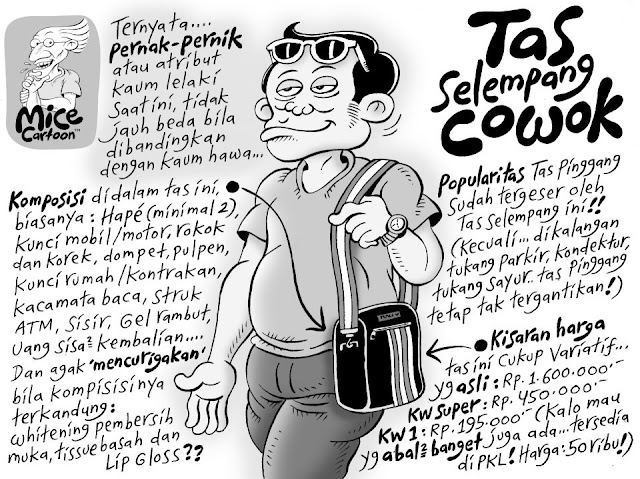 Mice
Cartoon™
Ternyata....
Pernak-Pernik
atau atribut
kaum lelaki
saat ini, tidak
jauh beda bila
dibandingkan
dengan kaum hawa...
Tas
Selempang
Cowok
Komposisi didalam tas ini,
biasanya: Hapé (minimal 2),
Kunci mobil/motor, rokok
dan korek, dompet, pulpen,
Kunci rumah/kontrakan,
kacamata baca, Struk
ATM, Sisir, Gel rambut,
Uang sisa² kembalian....
Dan agak 'mencurigakan'
bila kompisisinya
terkandung:
whitening pembersih
muka, tissue basah dan
Lip Gloss??
Popularitas Tas Pinggang
Sudah tergeser oleh
Tas selempang ini!!
(kecuali... dikalangan
tukang parkir, Kondektur,
tukang Sayur.. tas Pinggang
tetap tak tergantikan!)
Kisaran harga
tas ini Cukup Variatif...
yg asli: Rp. 1.600.000.-
KW super: Rp. 450.000.-
KW 1: Rp. 195.000.- (Kalo mau
yg abal² banget juga ada... tersedia
di PKL! Harga: 50 ribu!)